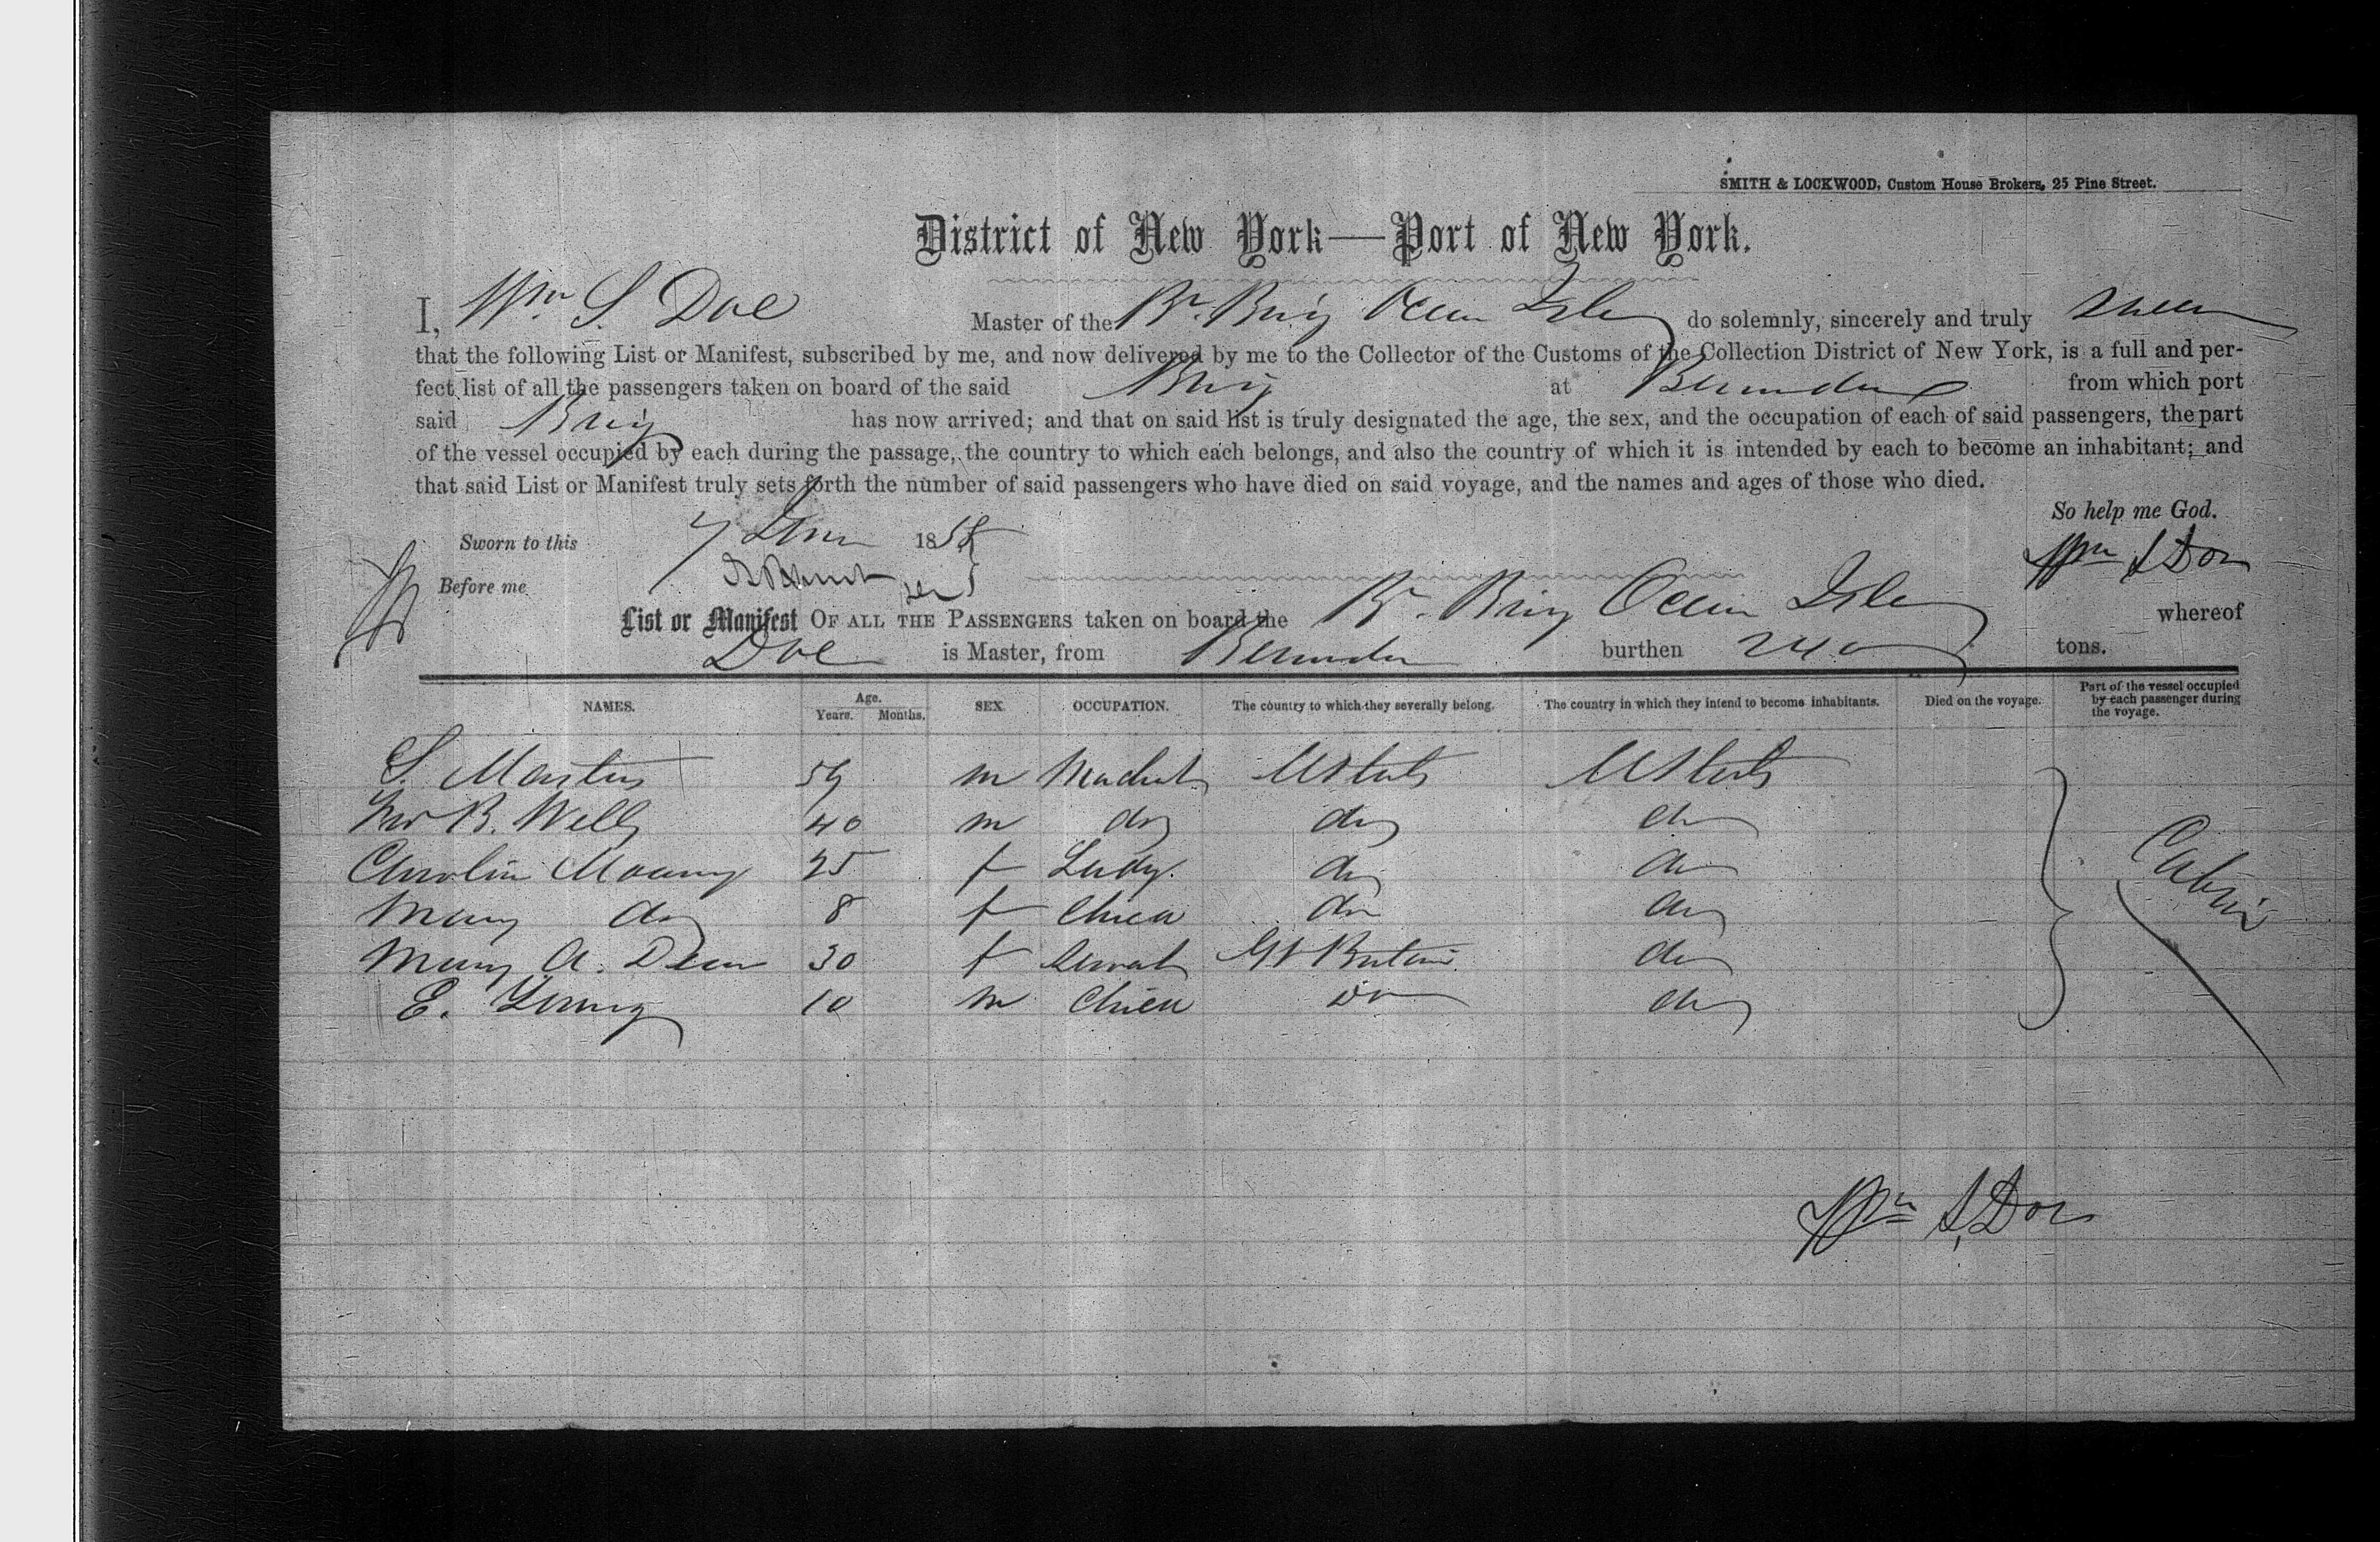 SMITH & LOCKWOOD, Custom House Brokers, 25 Pine Street.
District of New York—Port of New York.
I, Wm S. Doe Master of the Br. Brig Ocean Isle do solemnly, sincerely and truly swear
that the following List or Manifest, subscribed by me, and now delivered by me to the Collector of the Customs of the Collection District of New York, is a full and per-
fect list of all the passengers taken on board of the said Brig at Bermuda from which port
said Brig has now arrived; and that on said list is truly designated the age, the sex, and the occupation of each of said passengers, the part
of the vessel occupied by each during the passage, the country to which each belongs, and also the country of which it is intended by each to become an inhabitant; and
that said List or Manifest truly sets forth the number of said passengers who have died on said voyage, and the names and ages of those who died.
So help me God.
Sworn to this 7 June 1858
Wm S Doe
Before me
List or Manifest OF ALL THE PASSENGERS taken on board the Br. Brig Ocean Isle whereof
Doe is Master, from Bermuda burthen 240 tons.
NAMES. Age. Years. Months. SEX. OCCUPATION. The country to which they severally belong. The country in which they intend to become inhabitants. Died on the voyage. Part of the vessel occupied by each passenger during the voyage.
S. m U States U States
B. Wells 40 m do do do
Caroline 25 f Lady do do
Mary do 8 f Child do do
Mary A. 30 f Servant Gt Britain do
E. Young 10 m Child do do
Cabin
Wm S. Doe